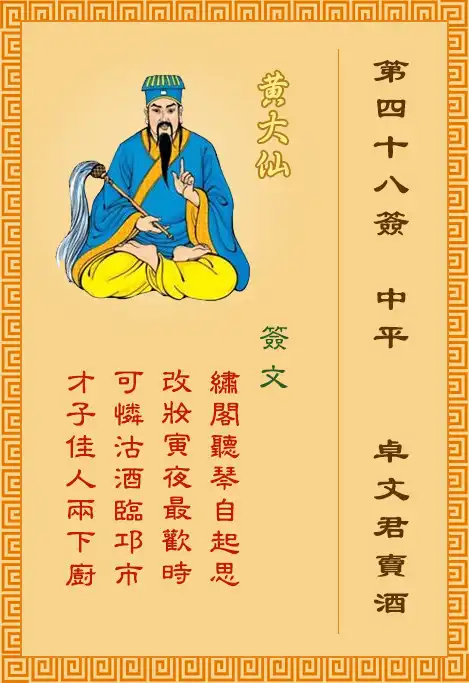 第四十八簽　中平　卓文君賣酒
黃大仙
簽文
繡閣聽琴自起思
改妝寅夜最歡時
可憐沽酒臨邛市
才子佳人兩下廚